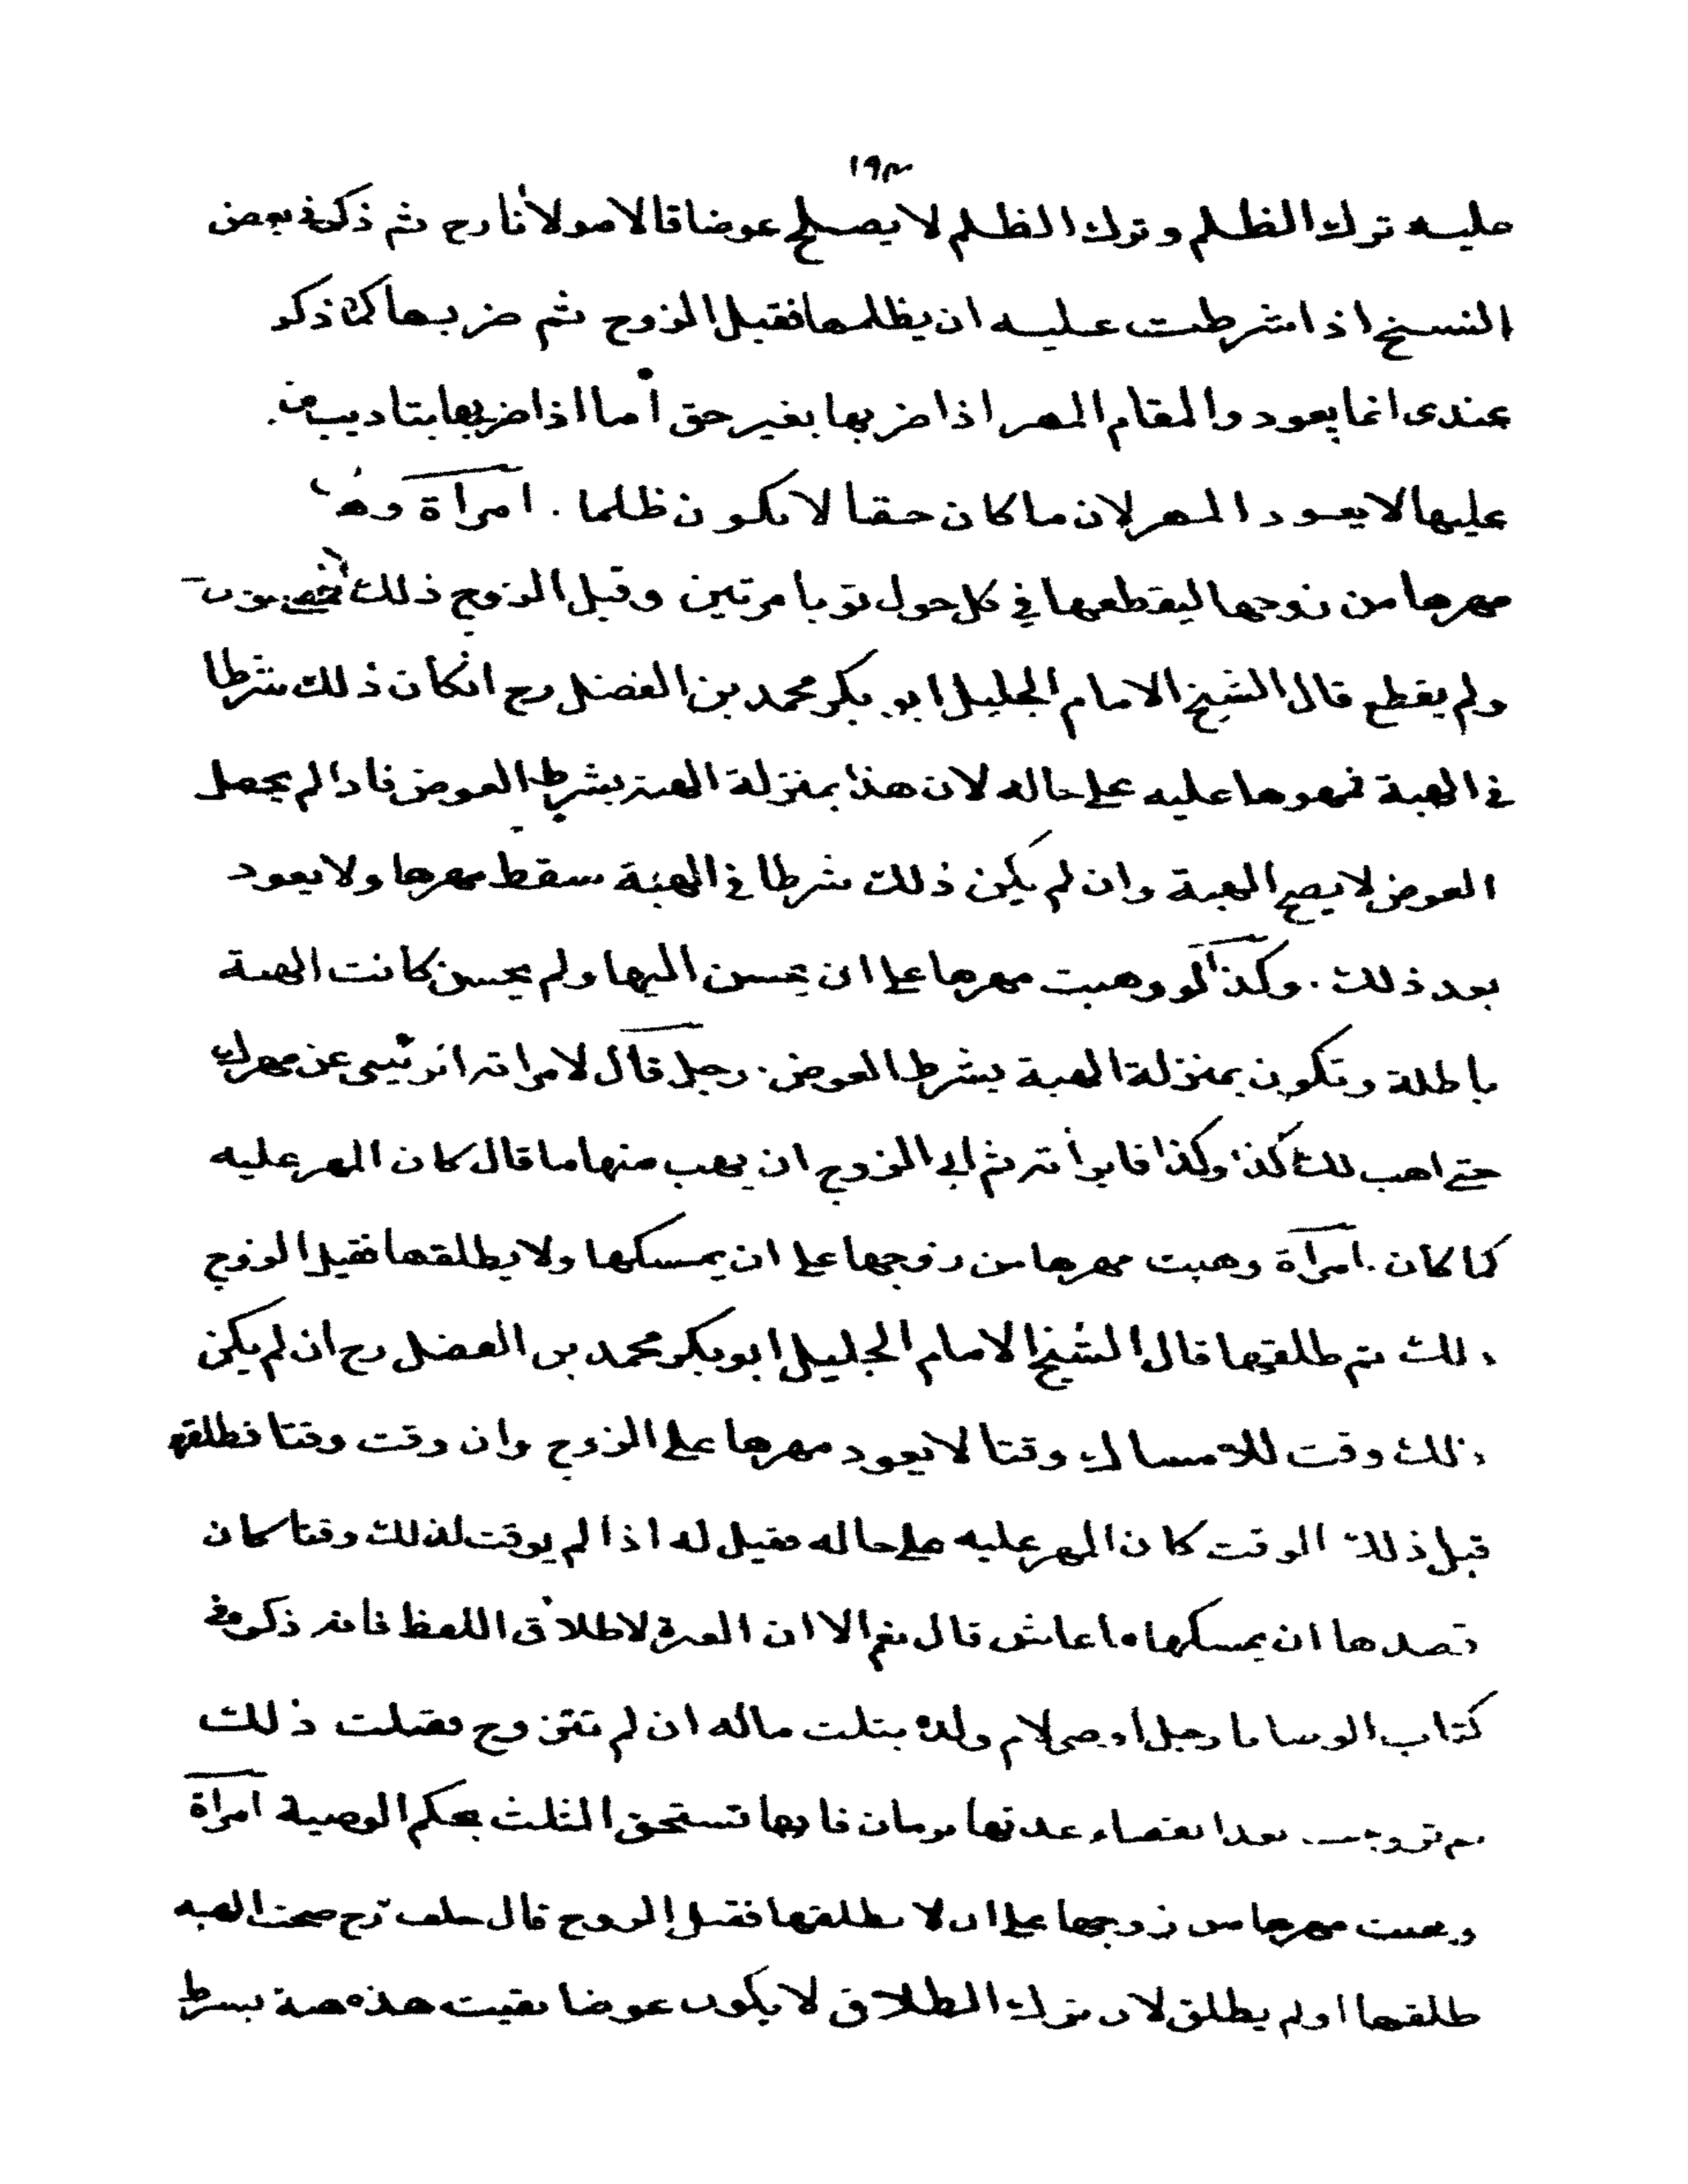 ١٩٣
عليه ترك الظلم وترك الظلم لا يصلح عوضا قالا مولانا رح ثم ذكر في بعض
النسخ اذا شرطت عليه ان يظلمها فقبل الزوج ثم ضربها كما ذكر
عندى انما يعود والمقام المهر اذا ضربها بغير حق أما اذا ضربها بتاديب
عليها لا يعود المهر لان ما كان حقا لا يكون ظلما . امرأة وهبت
مهرها من زوجها ليقطعها في كل حول ثوبا مرتين وقبل الزوج ذلك
ولم يقطع قال الشيخ الامام الجليل ابو بكر محمد بن الفضل رح انكان ذلك شرطا
في الهبة فمهرها عليه على حاله لان هذا بمنزلة الهبة بشرط العوض فاذا لم يحصل
العوض لا يصح الهبة وان لم يكن ذلك شرطا في الهبة سقط مهرها ولا يعود
بعد ذلك . وكذا لو وهبت مهرها على ان يحسن اليها ولم يحسن كانت الهبة
باطلة وتكون بمنزلة الهبة بشرط العوض . رجل قال لامراته ابرئينى عن مهرك
حتى اهب لك كذا وكذا فابرأته ثم ابى الزوج ان يهب منها ما قال كان المهر عليه
كما كان . امرأة وهبت مهرها من زوجها على ان يمسكها ولا يطلقها فقبل الزوج
ذلك ثم طلقها قال الشيخ الامام الجليل ابو بكر محمد بن الفضل رح ان لم يكن
ذلك وقت للامساك وقتا لا يعود مهرها على الزوج وان وقت وقتا فطلقها
قبل ذلك الوقت كان المهر عليه على حاله فقيل له اذا لم يوقت لذلك وقتا كان
قصدها ان يمسكها ما عاش قال نعم الا ان العبرة لاطلاق اللفظ فانه ذكر في
كتاب الوصايا رجل أوصى لام ولده بثلث ماله ان لم تتزوج فقبلت ذلك
ثم تزوجت بعد انقضاء عدتها بزمان فانها تستحق الثلث بحكم الوصية امرأة
وهبت مهرها من زوجها على ان لا يطلقها فقبل الزوج قال خلف رح صحت الهبه
طلقها او لم يطلق لان ترك الطلاق لا يكون عوضا بقيت هذه هبة بشرط